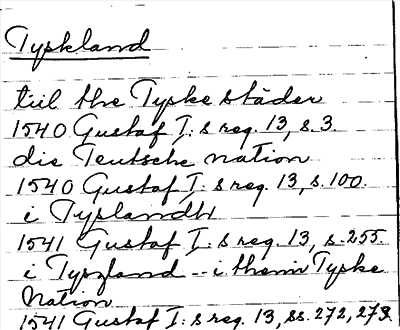 Tyskland
till the Tyske städer
1540 Gustaf I:s reg. 13, s. 3.
die Teutsche nation
1540 Gustaf I:s reg. 13, s. 100.
i Tyslandh
1541 Gustaf I:s reg. 13, s. 255.
i - i Tyske
Nation
1541 Gustaf I:s reg. 13, ss. 272, 273.